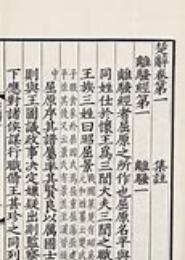 楚辭卷第一 集註
離騷經第一 離騷一
離騷經者屈原之所作也屈原名平與
同姓仕於懷王為三閭大夫三閭之職
王族三姓曰昭屈景
屈原序其譜屬率其賢良以厲國士
則與王圖議政事決定嫌疑出則監察
下應對諸侯謀行職修王甚珍之同列